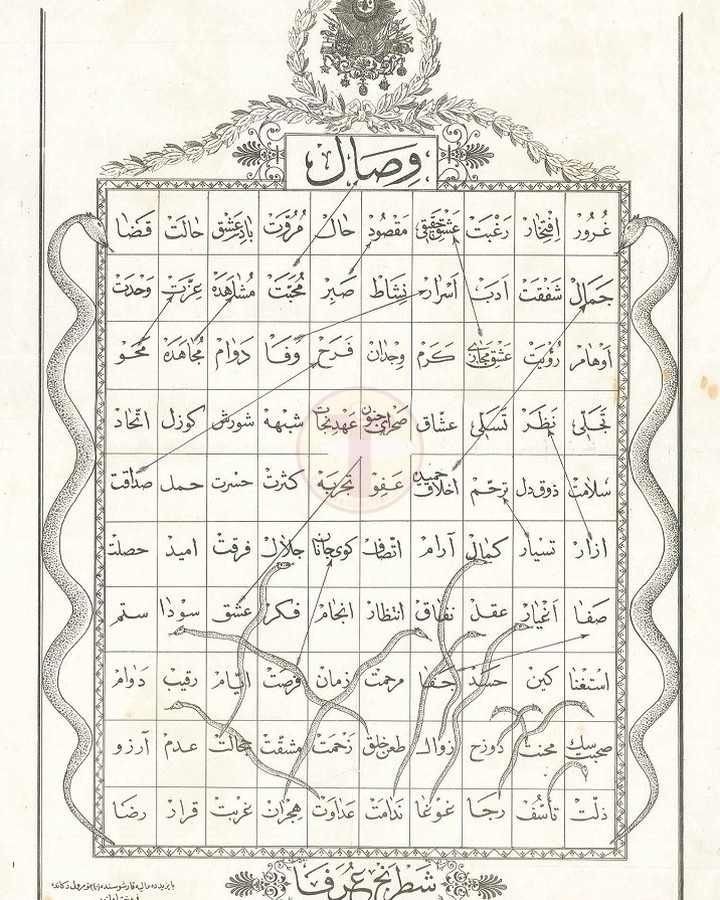 وصال
غرور افتخار رغبت عشق حقیقی مقصود حال مروت باد عشق حالت قضا
جمال شفقت ادب اسرار نشاط صبر محبت مشاهده عزت وحدت
اوهام رؤیت عشق مجازی کرم وجدان فرح وفا دوام مجاهده محو
تجلی نظر تسلی عشاق صحرای جنون عهد نجات شبهه شورش کوزل اتحاد
سلامت ذوق دل ترحم اخلاق حمیده عفو تجربه کثرت حسرت حمل صداقت
ازار تسیار کمال آرام اتصاف کوی جانان جلال فرقت امید حصلت
صفا اغیار عقل نفاق انتظار انجام فکر عشق سودا ستم
استغنا کین حسد جفا مرحمت زمان فرصت ایام رقیب دوام
صحبت سک محنت دوزح زوال طعن خلق زحمت مشقت جحالت عدم آرزو
ذلت تأسف رجا غوغا ندامت عداوت هجران غربت قرار رضا
شطرنج عرفا